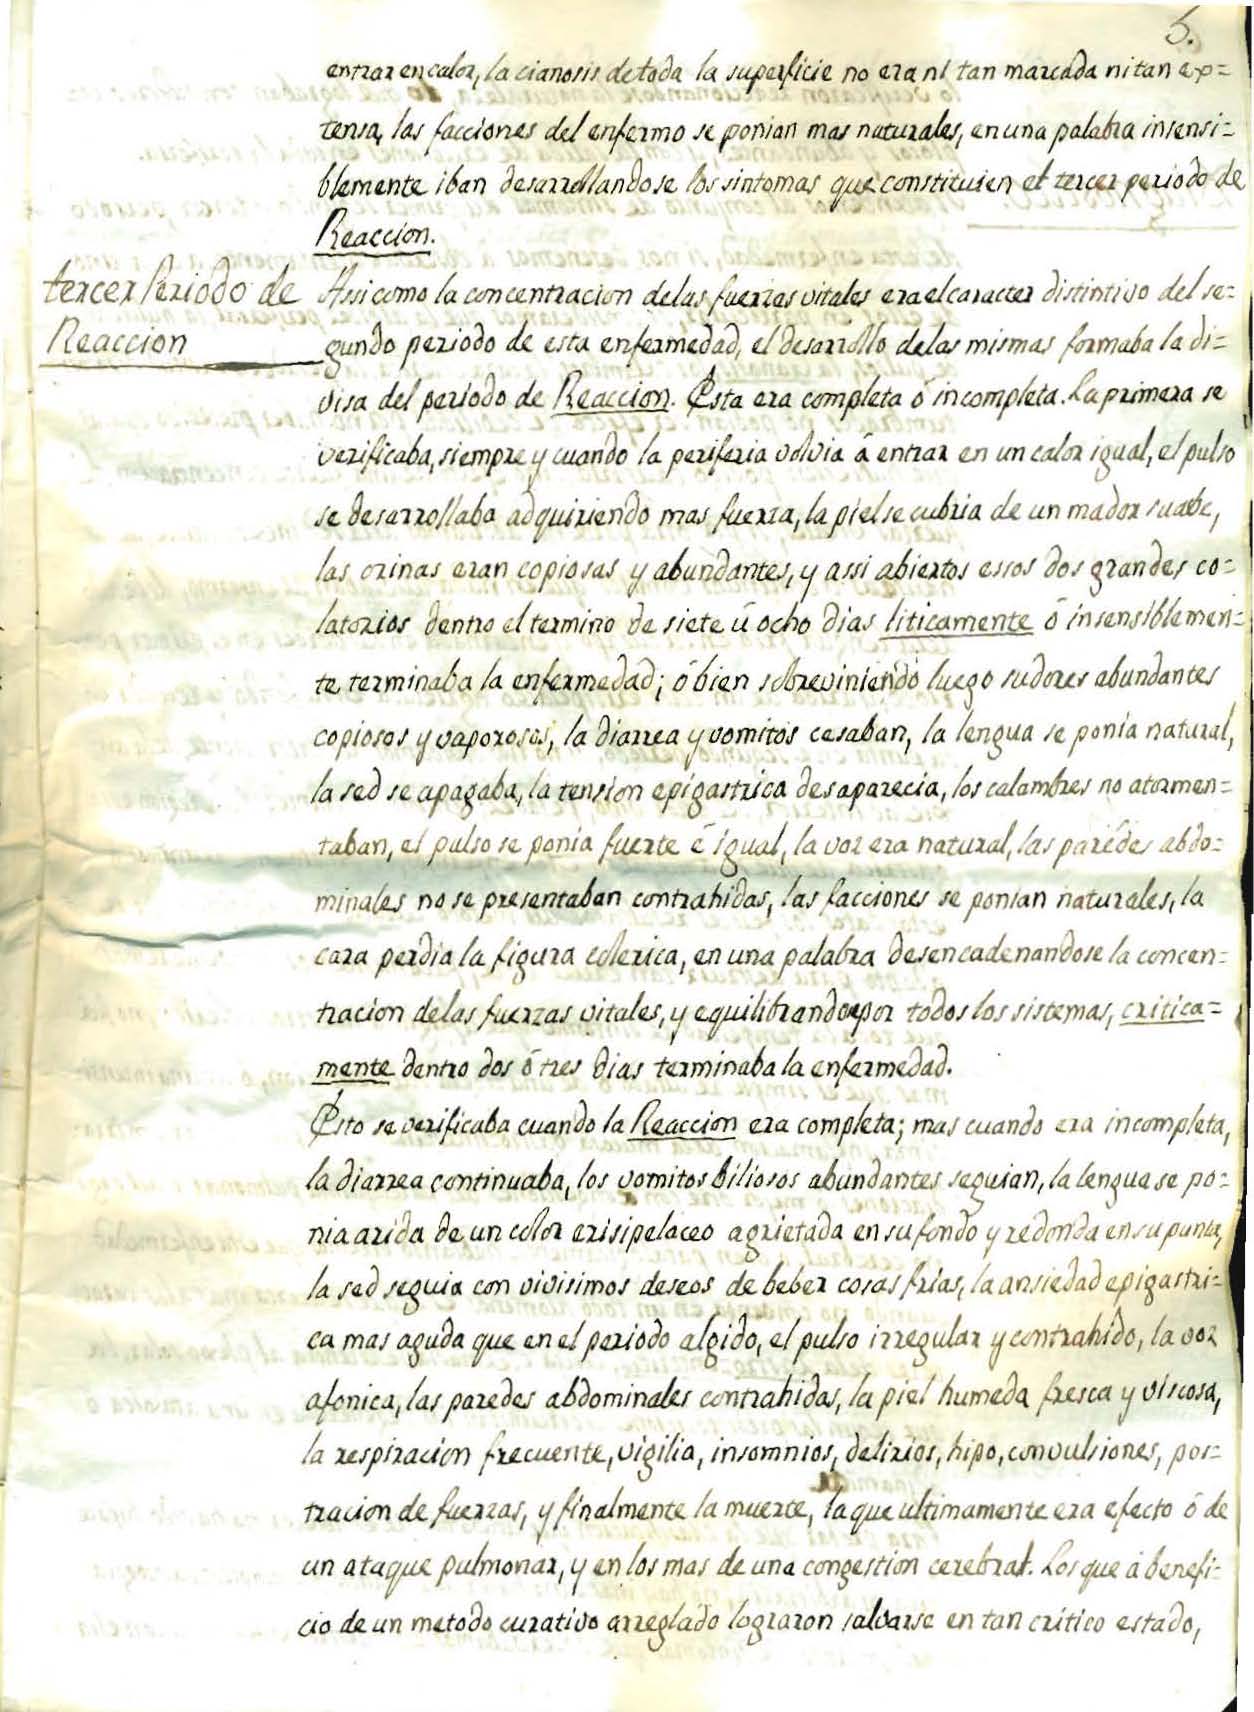 5.
entrar en calor, la cianosis de toda la superficie no era ni tan marcada ni tan ex=
tensa, las facciones del enfermo se ponian mas naturales, en una palabra insensi=
blemente iban desarrollandose los sintomas que constituien el tercer periodo de
Reaccion.
tercer Periodo de
Reaccion
Assi como la concentracion de las fuerzas vitales era el caracter distintivo del se=
gundo periodo de esta enfermedad, el desarrollo de las mismas formaba la di=
visa del periodo de Reaccion. Esta era completa ó incompleta. La primera se
verificaba, siempre y cuando la periferia volvia á entrar en un calor igual, el pulso
se desarrollaba adquiriendo mas fuerza, la piel se cubria de un mador suabe,
las orinas eran copiosas y abundantes, y assi abiertos essos dos grandes co=
latorios dentro el termino de siete ú ocho dias liticamente ó insensiblemen=
te terminaba la enfermedad; ó bien sobreviniendo luego sudores abundantes
copiosos y vaporosos, la diarrea y vomitos cesaban, la lengua se ponia natural,
la sed se apagaba, la tension epigastrica desaparecia, los calambres no atormen=
taban, el pulso se ponia fuerte é igual, la voz era natural, las paredes abdo=
minales no se presentaban contrahidas, las facciones se ponian naturales, la
cara perdia la figura colerica, en una palabra desencadenandose la concen=
tracion de las fuerzas vitales, y equilibrandose por todos los sistemas, critica=
mente dentro dos ó tres dias terminaba la enfermedad.
Esto se verificaba cuando la Reaccion era completa; mas cuando era incompleta,
la diarrea continuaba, los vomitos biliosos abundantes seguian, la lengua se po=
nia arida de un color erisipelaceo agrietada en su fondo y redonda en su punta,
la sed seguia con vivisimos deseos de beber cosas frias, la ansiedad epigastri=
ca mas aguda que en el periodo algido, el pulso irregular y contrahido, la voz
afonica, las paredes abdominales contrahidas, la piel humeda fresca y viscosa,
la respiracion frecuente, vigilia, insomnios, delirios, hipo, convulsiones, pos=
tracion de fuerzas, y finalmente la muerte, la que ultimamente era efecto ó de
un ataque pulmonar, y en los mas de una congestion cerebral. Los que á benefi=
cio de un metodo curativo arreglado lograron salvarse en tan critico estado,